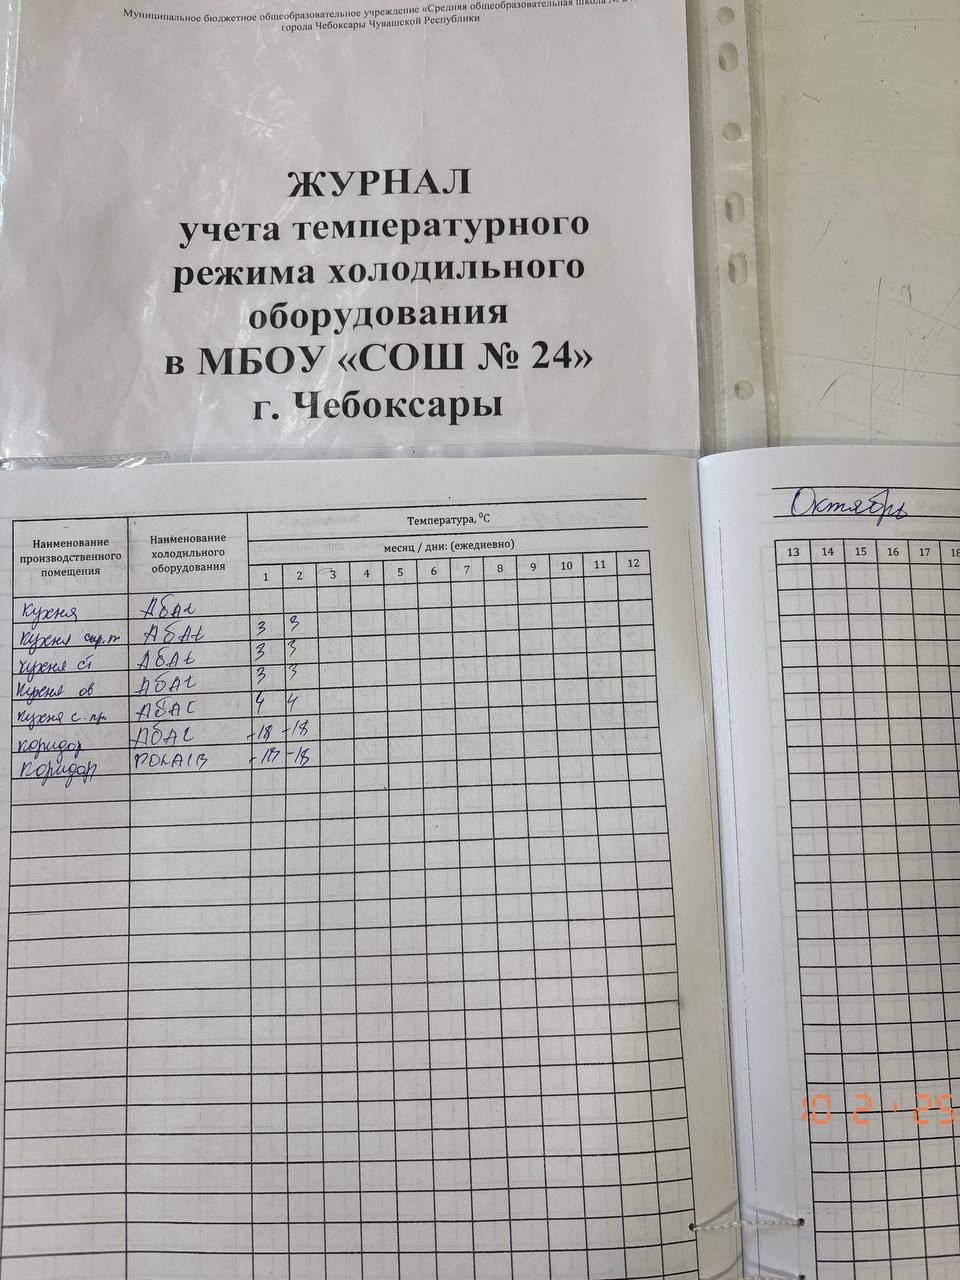 Муниципальное бюджетное общеобразовательное учреждение «Средняя общеобразовательная школа №
города Чебоксары Чувашской Республики
ЖУРНАЛ
учета температурного
режима холодильного
оборудования
в МБОУ «СОШ № 24»
г. Чебоксары
Наименование производственного помещения
Наименование холодильного оборудования
Температура, ⁰С
месяц / дни: (ежедневно)
1 2 3 4 5 6 7 8 9 10 11 12
Кухня Абат
Кухня Абат 3 3
Кухня ст Абат 3 3
Кухня ов Абат 3 3
Кухня с. пр. Абат 4 4
Коридор Абат -18 -18
Коридор POLAIR -18 -18
Октябрь
13 14 15 16 17 18
10 2 ' 25